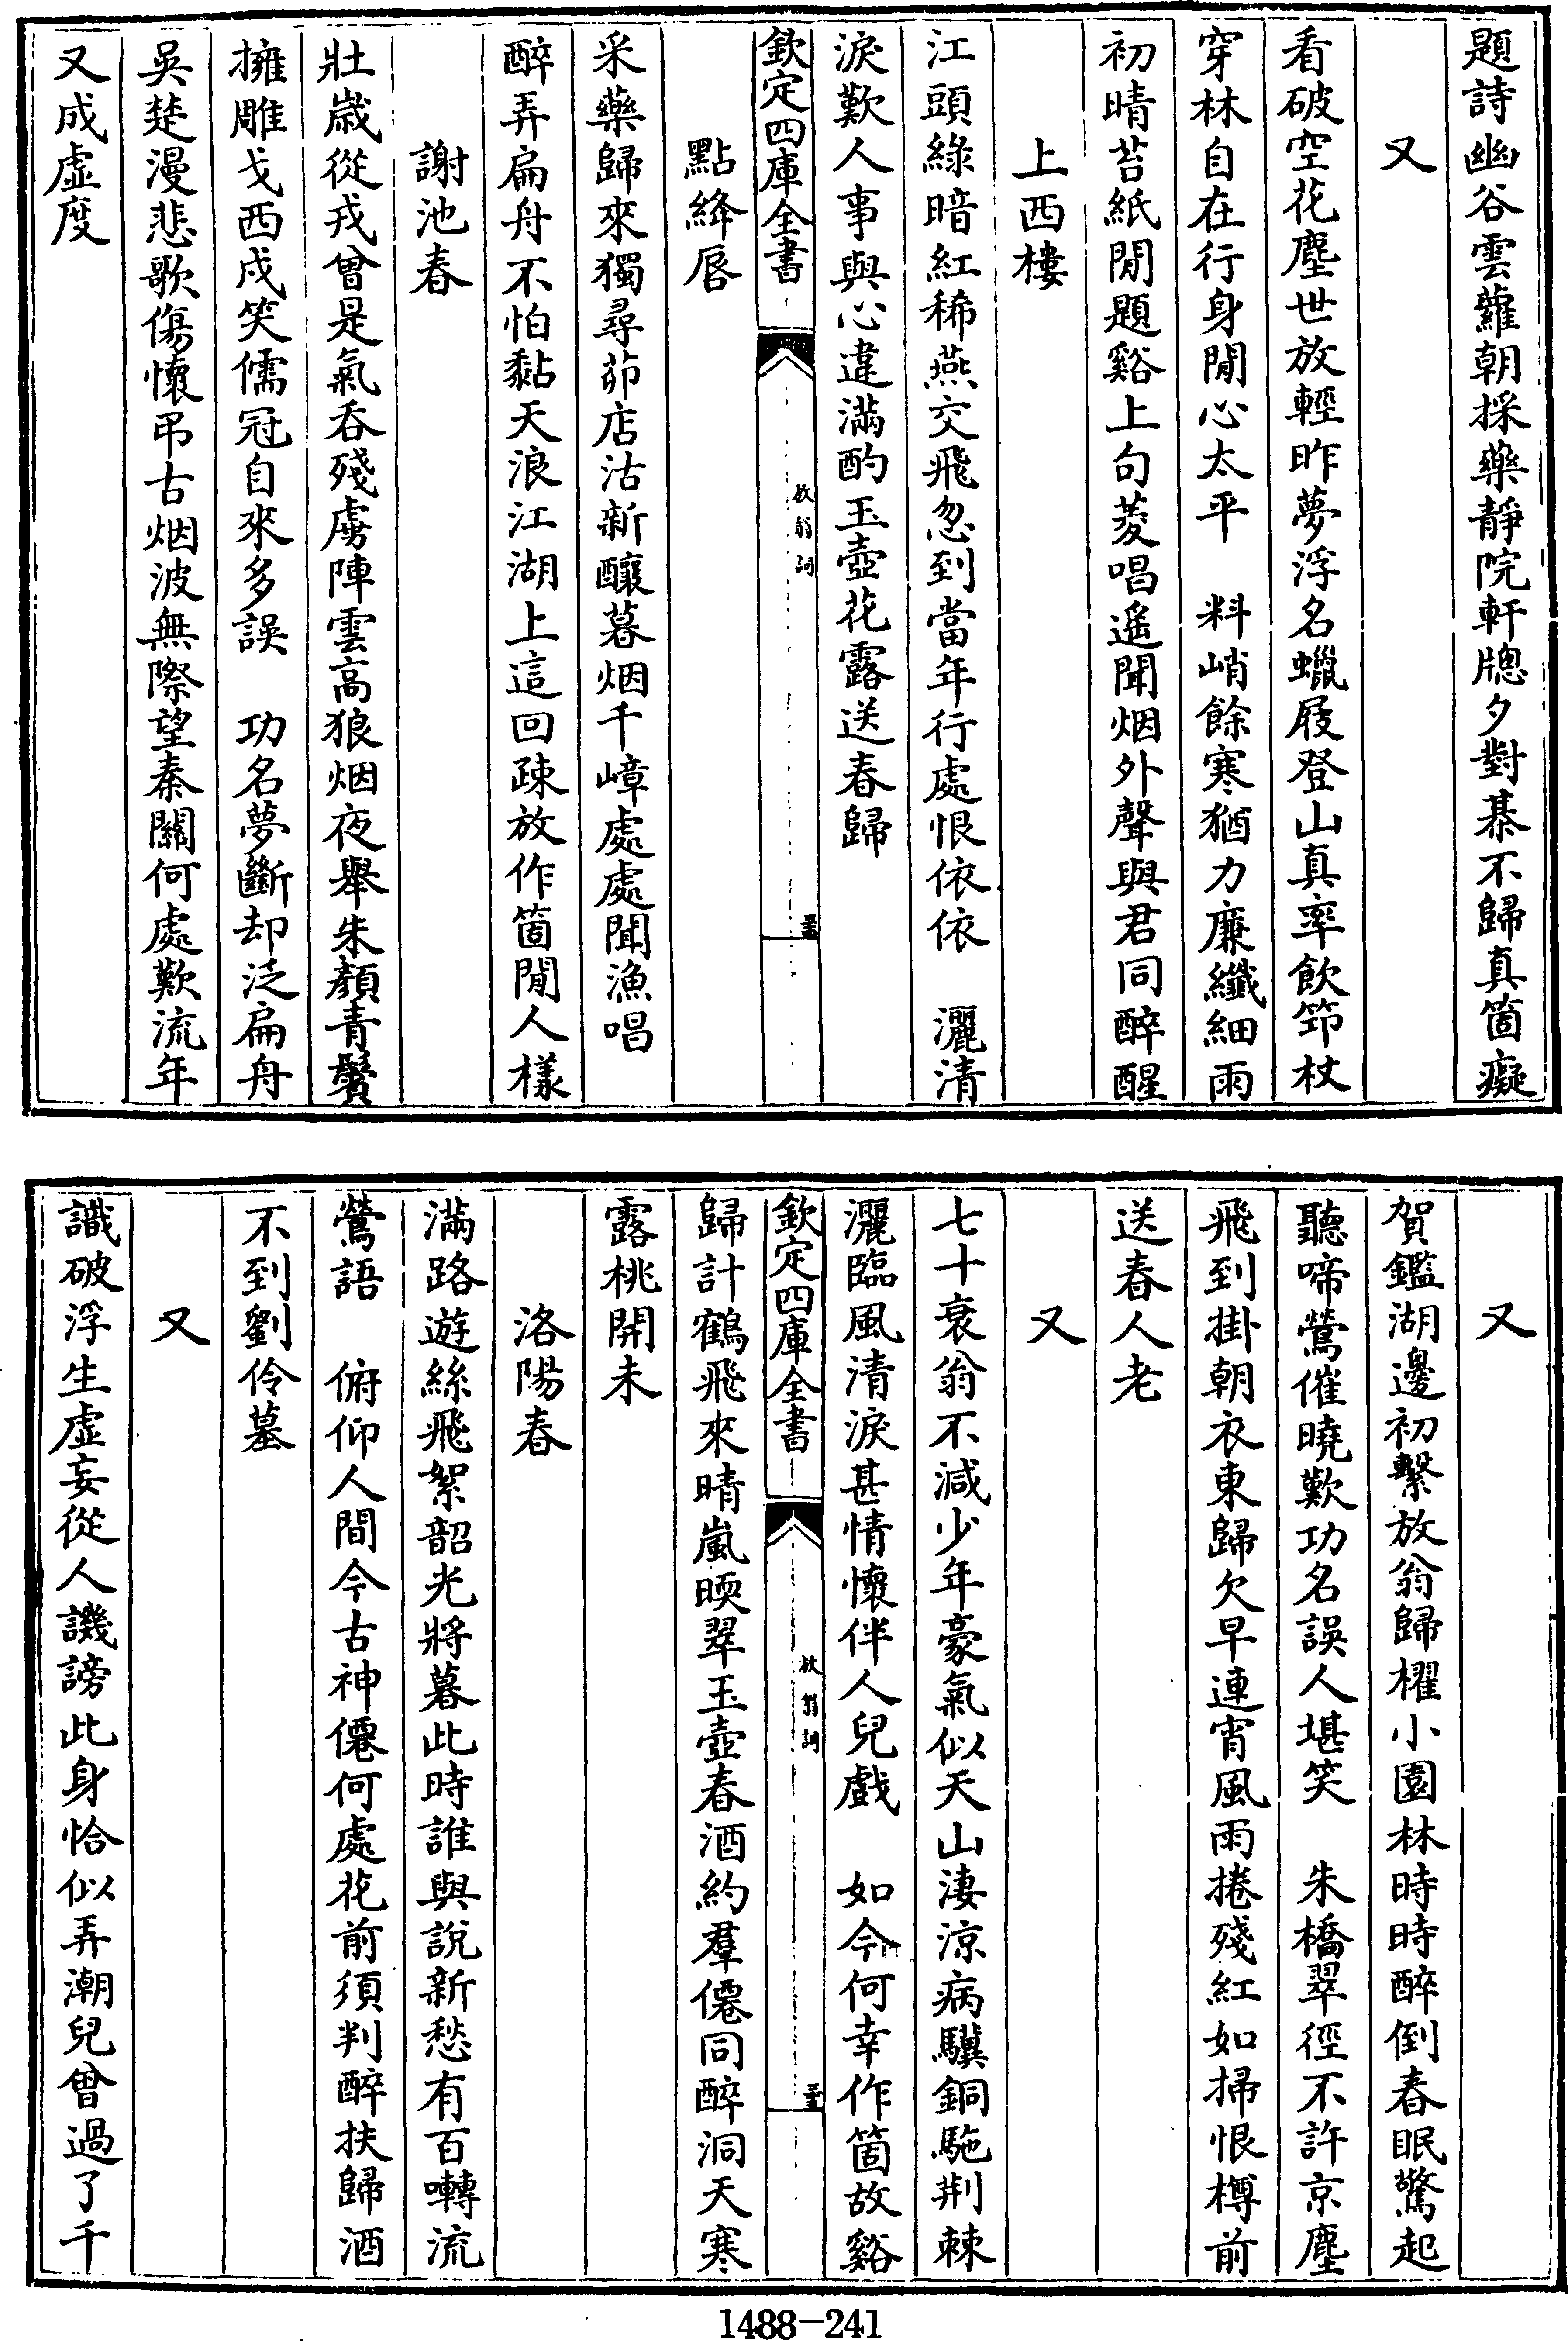 題詩幽谷雲蘿朝採藥靜院軒牕夕對棊不歸真箇癡
又
看破空花塵世放輕昨夢浮名蠟屐登山真率飲笻杖
穿林自在行身閒心太平　料峭餘寒猶力廉纖細雨
初晴苔紙閒題谿上句菱唱遥聞烟外聲與君同醉醒
上西樓
江頭綠暗紅稀燕交飛忽到當年行處恨依依　灑清
淚歎人事與心違滿酌玉壺花露送春歸
欽定四庫全書
放翁詞
點絳唇
采藥歸來獨尋茆店沽新釀暮烟千嶂處處聞漁唱
醉弄扁舟不怕黏天浪江湖上這回疎放作箇閒人樣
謝池春
壯歲從戎曾是氣吞殘虜陣雲高狼烟夜舉朱顏青鬢
擁雕戈西戍笑儒冠自來多誤　功名夢斷却泛扁舟
吳楚漫悲歌傷懷弔古烟波無際望秦關何處歎流年
又成虛度
又
賀鑑湖邊初繫放翁歸櫂小園林時時醉倒春眠驚起
聽啼鶯催曉歎功名誤人堪笑　朱橋翠徑不許京塵
飛到掛朝衣東歸欠早連宵風雨捲殘紅如掃恨樽前
送春人老
又
七十衰翁不減少年豪氣似天山淒涼病驥銅駞荆棘
灑臨風清淚甚情懷伴人兒戲　如今何幸作箇故谿
欽定四庫全書
放翁詞
歸計鶴飛來晴嵐暎翠玉壺春酒約羣僊同醉洞天寒
露桃開未
洛陽春
滿路遊絲飛絮韶光將暮此時誰與說新愁有百囀流
鶯語　俯仰人間今古神僊何處花前須判醉扶歸酒
不到劉伶墓
又
識破浮生虛妄從人譏謗此身恰似弄潮兒曾過了千
1488—241